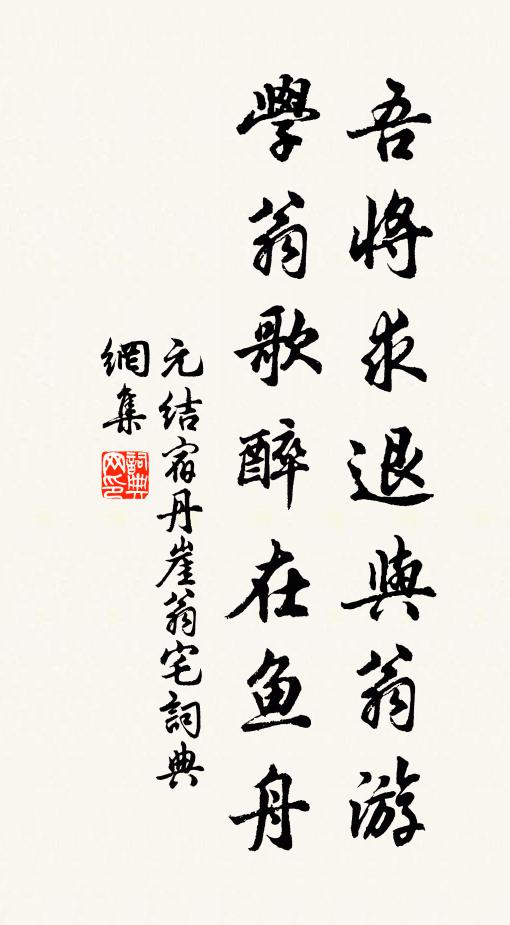 吾将求退與翁游
學翁歌醉在鱼舟
元结宿丹崖翁宅詞典
網集
詞典
网印